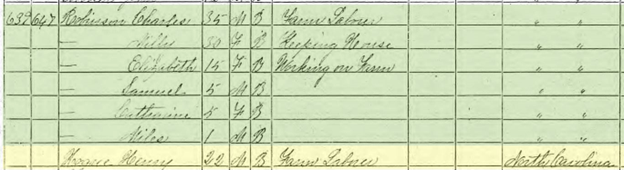 639 647 Robinson Charles 35 M B Farm Labour " "
— Milly 30 F B Keeping House " "
— Elizabeth 15 F B Working on Farm " "
— Samuel 5 M B " "
— Catharine 5 F B " "
— Miles 1 M B " "
Henry 22 M B Farm Labour North Carolina